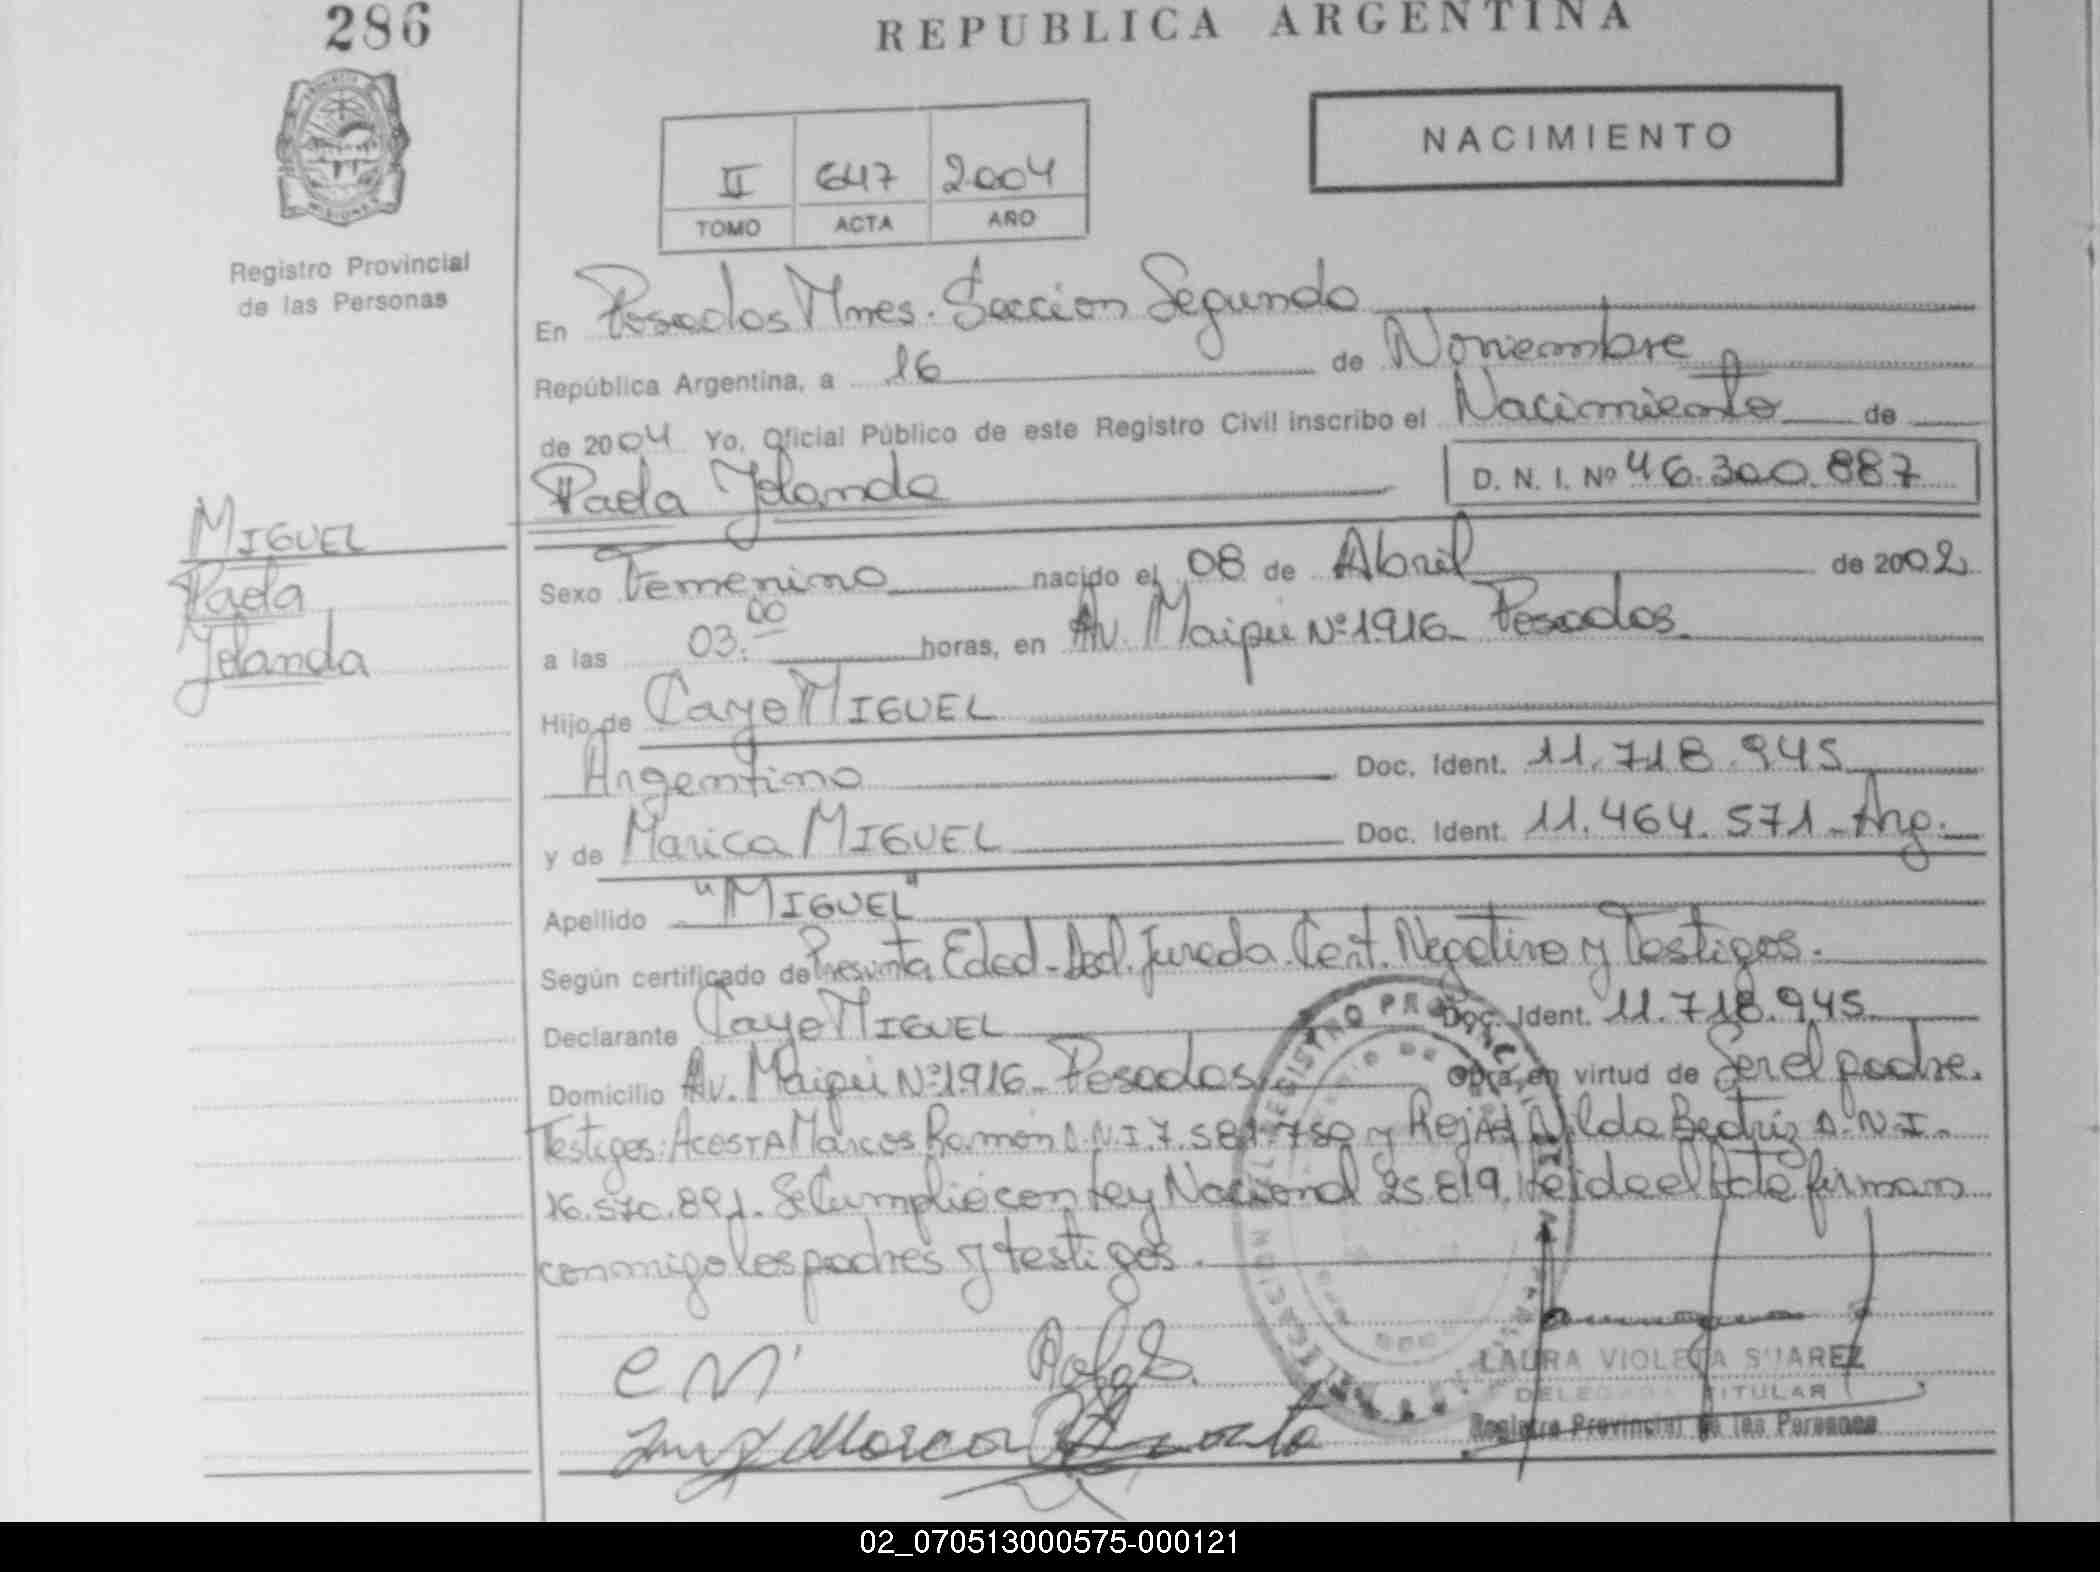 286
REPUBLICA ARGENTINA
NACIMIENTO
II 647 2004
TOMO ACTA AÑO
PROVINCIA
MISIONES
Registro Provincial
de las Personas
En Posadas Mnes. Sección Segunda
República Argentina, a 16 de Noviembre
de 2004 Yo, Oficial Público de este Registro Civil inscribo el Nacimiento de
Paola Yolanda D. N. I. Nº 46.300.887
MIGUEL
Paola
Yolanda
Sexo Femenino nacido el 08 de Abril de 2002
a las 03:00 horas, en Av. Maipú Nº 1916 - Posadas.
Hijo de Cayo MIGUEL
Argentino Doc. Ident. 11.718.945
y de Marica MIGUEL Doc. Ident. 11.464.571 - Arg.
Apellido "MIGUEL"
Según certificado de Presunta Edad - Decl. Jurada. Cert. Negativo y Testigos.
Declarante Cayo MIGUEL Doc. Ident. 11.718.945
Domicilio Av. Maipú Nº 1916 - Posadas Obra en virtud de Ser el padre.
Testigos: ACOSTA Marcos Ramón D.N.I. 7.581.750 y Rojas Hilda Beatriz D.N.I.
16.570.891. Se Cumplió con Ley Nacional 25.819, leída el Acta firman
conmigo los padres y testigos.
CM
LAURA VIOLETA SUAREZ
DELEGADA TITULAR
Registro Provincial de las Personas
02_070513000575-000121